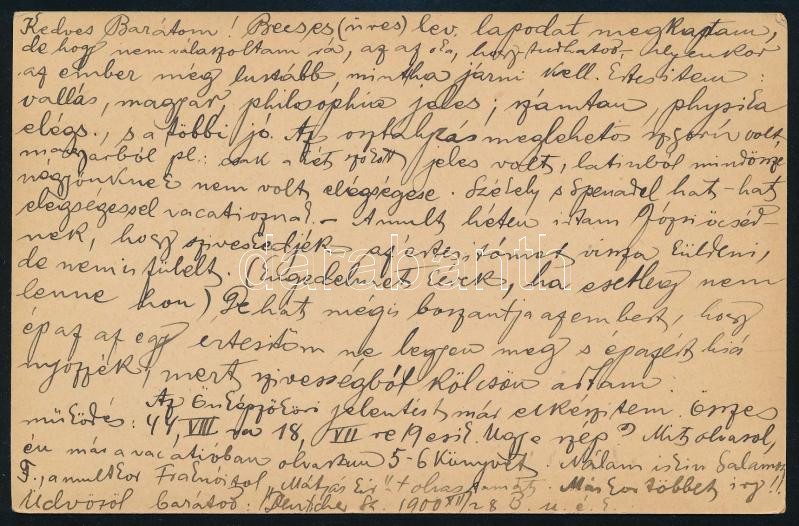 Kedves Barátom! Becses (üres) lev. lapodat megkaptam,
de hogy nem válaszoltam rá, az az oka, hogy tudhatod, ilyenkor
az ember még lustább, mintha járni kell. Értesitem:
vallás, magyar, philosophia jeles; számtan, physika
elégs., s a többi jó. Az osztályzás meglehetős szigorú volt,
magyarból pl.: csak a két között jeles volt, latinból mindössze
négyünknek nem volt elégségese. Székely s Spenadel hat-hat
elégségessel vacatioznak. - A mult héten irtam Józsi öcséd-
nek, hogy sziveskedjék az értesitőmet vissza küldeni,
de nem is fülelt. (Engedelmet kérek, ha esetleg nem
lenne hon) De hát mégis boszantja az embert, hogy
épaz az egy értesitőm ne legyen meg s épazért
nyozzék, mert szivességből kölcsön adtam.
Az Önképzőköri jelentést már elkészitem. Összes
működés: 44, VIII ra 18, VII re 19 esik. Ugye szép? Mit olvasol,
én már a vacatióban olvastam 5-6 könyvet. Nálam is Salamon
F., a multkor Fraknóitól "Mátyás kir"-t olvastam. Máskor többet irj!!
Üdvözöl barátod: Deutscher 1900 XII/28 B. u. é. k.
darabanth